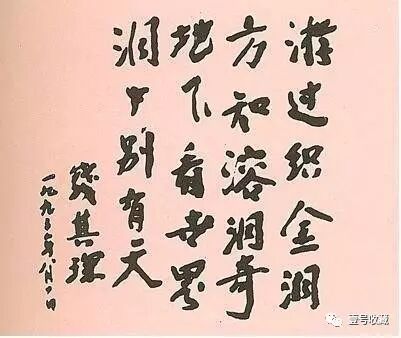 游过织金洞
方知溶洞奇
地下看世界
洞中别有天
钱其琛
一九九六年八月一日
壹号收藏